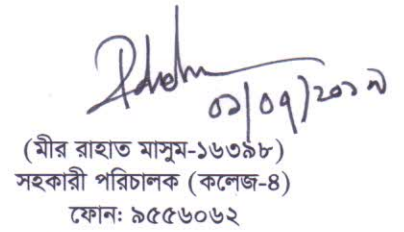 (মীর রাহাত মাসুম-১৬৩৯৮)
সহকারী পরিচালক (কলেজ-৪)
ফোনঃ ৯৫৫৬০৬২